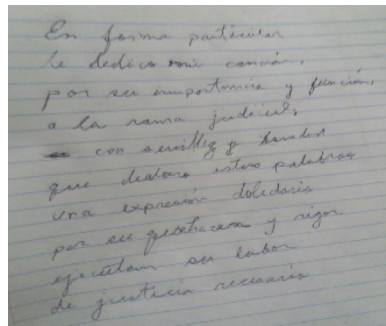 En forma particular
le dedico mi canción,
por su importancia y función,
a la rama judicial,
con sencillez y bondad
que declaro estas palabras
una expresión
por su y rigor
ejecutan su labor
de justicia necesaria